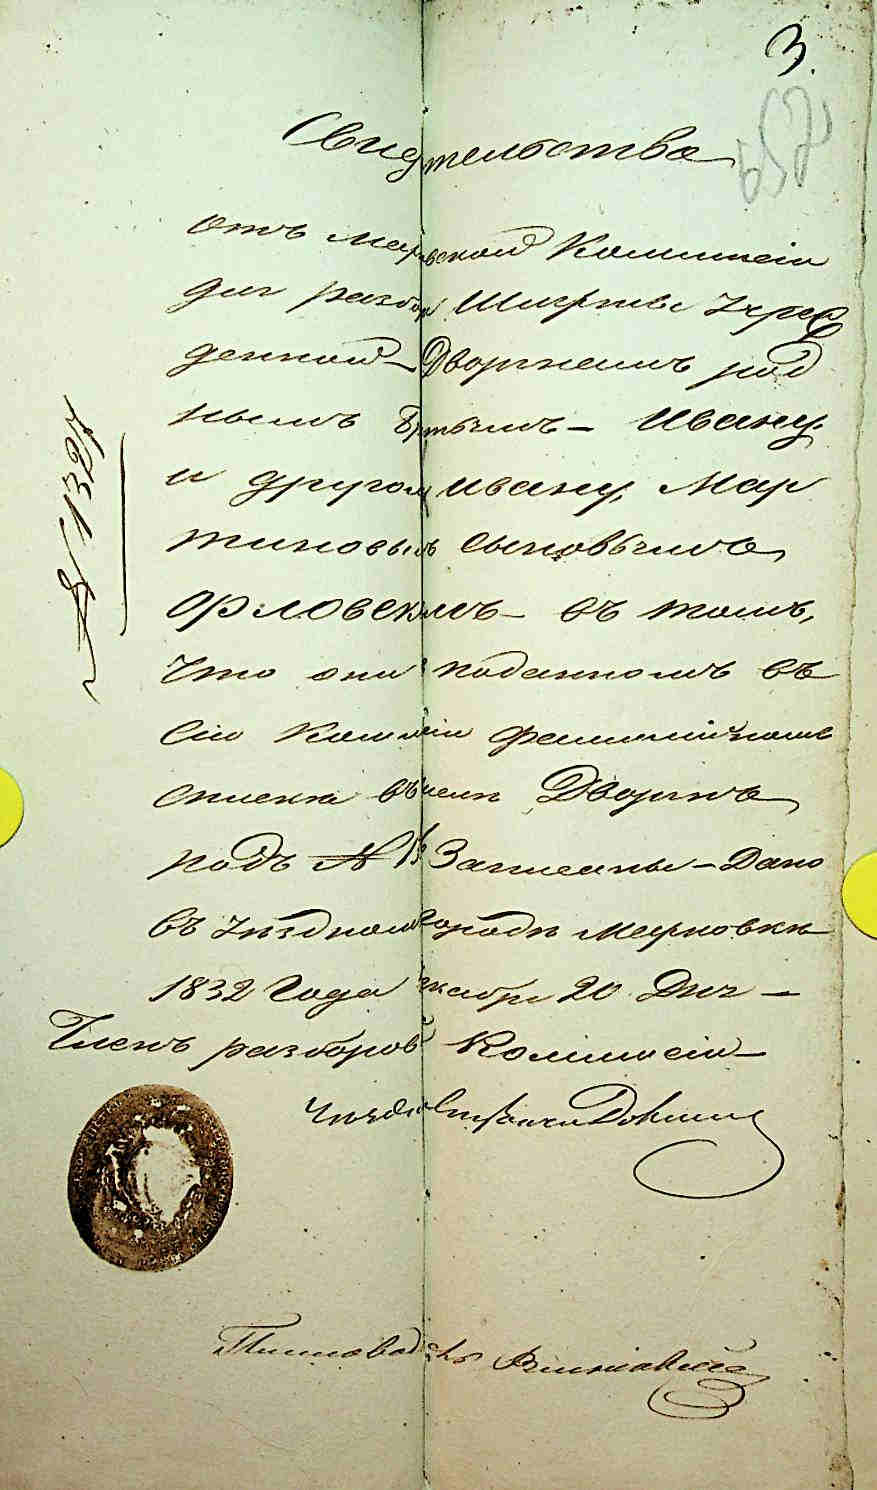 3.
652
Свидѣтельство
Отъ Марковской Коммисіи
для разбора Шляхты Учреж
денной Дворянамъ род
нымъ Братьямъ Ивану
и другому Ивану, Мар
тиновымъ Сыновьямъ
Орловскимъ въ томъ,
Что они поданномъ въ
Сію Коммисіи фамилийномъ
списке въ числѣ Дворянъ
подъ № Записаны Дано
въ Уѣздномъ городѣ
1832 Года Декабря 20 Дня
Членъ разборов Коммисіи
№ 1327